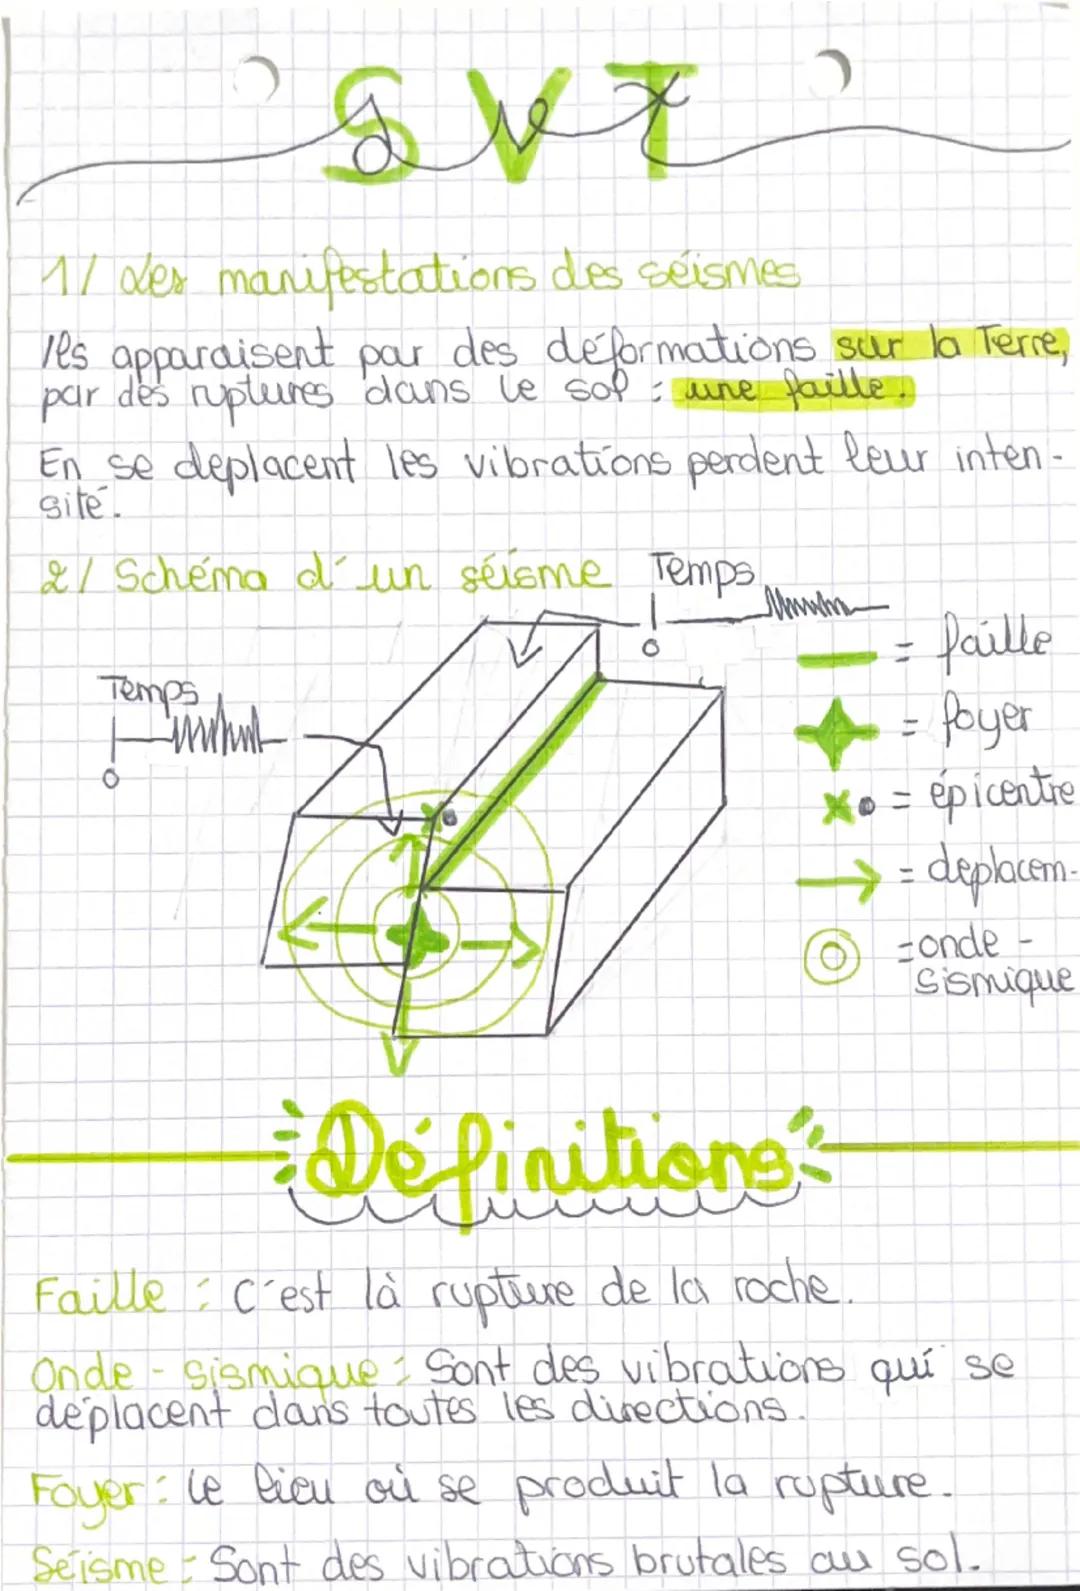 SVT
1/ Les manifestations des séismes
Ils apparaisent par des déformations sur la Terre,
par des ruptures dans le sol : une faille.
En se deplacent les vibrations perdent leur inten-
sité.
2/ Schéma d'un séisme
Temps
0
Temps
0
= faille
= foyer
= épicentre
= deplacem-
= onde -
sismique
Définitions
Faille : C'est là rupture de la roche.
Onde - sismique : Sont des vibrations qui se
déplacent dans toutes les directions.
Foyer : Le lieu où se produit la rupture.
Séisme : Sont des vibrations brutales au sol.